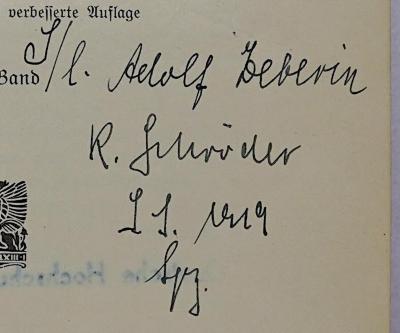 verbesserte Auflage
Band
S/l. Adolf Heberin
R. Schröder
Spz.
LXIII·1
che Hochschu